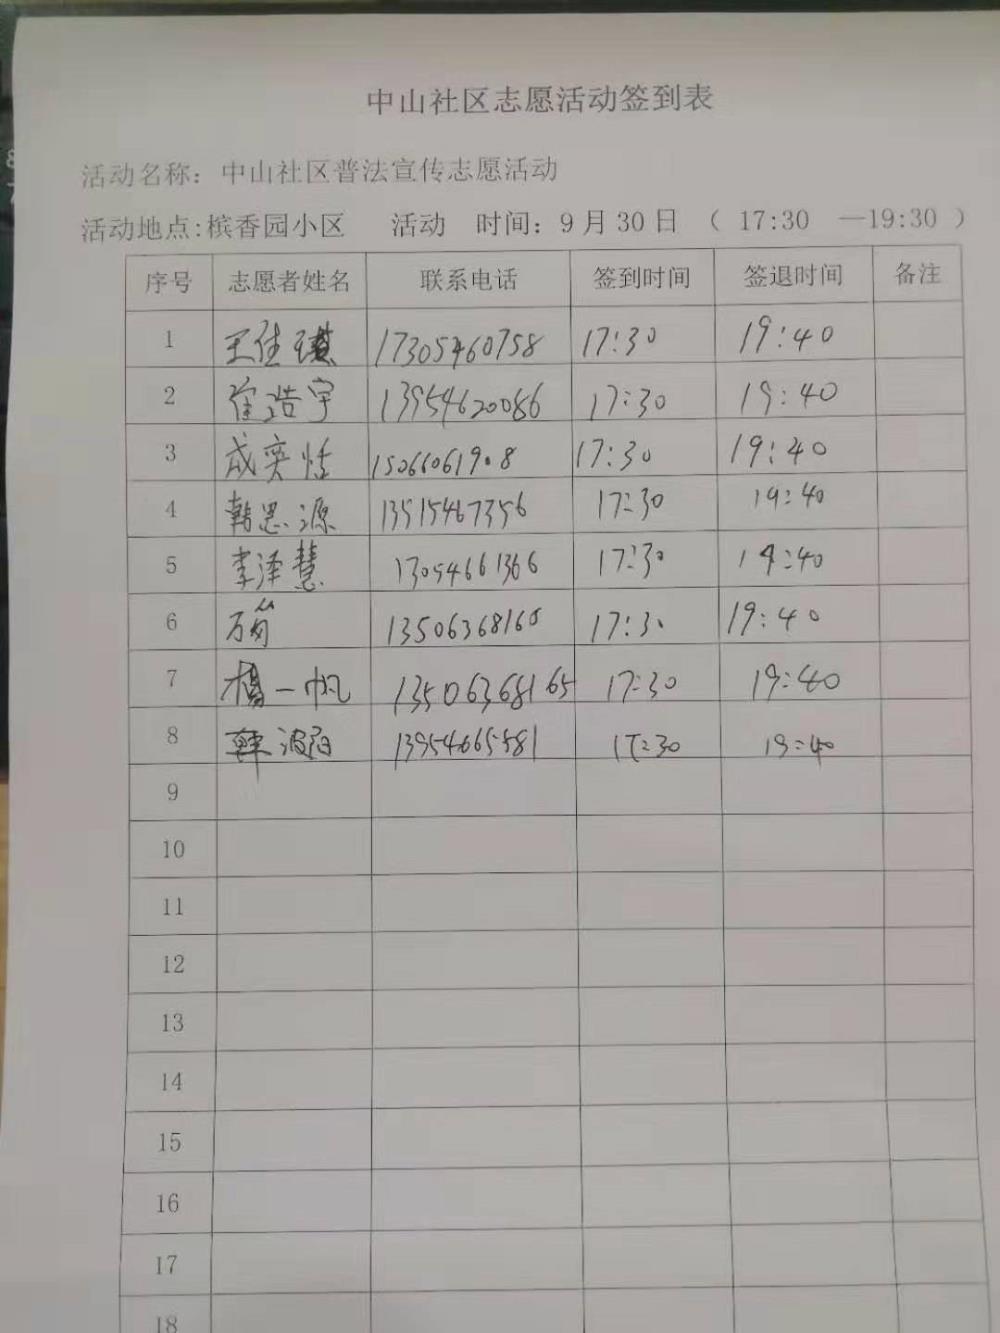 中山社区志愿活动签到表
活动名称：中山社区普法宣传志愿活动
活动地点:槟香园小区 活动 时间：9月30日（ 17:30 —19:30 ）
序号 志愿者姓名 联系电话 签到时间 签退时间 备注
1 王佳琪 17305460758 17:30 19:40
2 徐浩宇 13954620086 17:30 19:40
3 成奕恬 15066061908 17:30 19:40
4 韩思源 13515467356 17:30 19:40
5 李泽慧 13054661366 17:30 19:40
6 13506368165 17:30 19:40
7 杨一帆 13506368165 17:30 19:40
8 13954665581 17:30 19:40
9
10
11
12
13
14
15
16
17
18